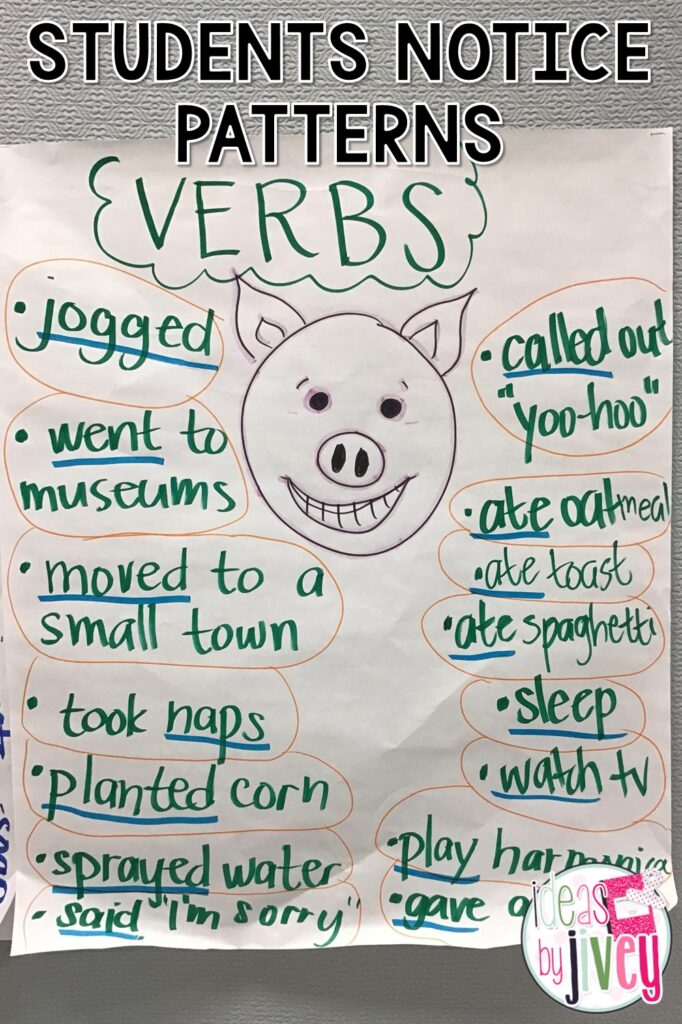 STUDENTS NOTICE
PATTERNS
VERBS
• jogged
• went to
museums
• moved to a
small town
• took naps
• planted corn
• sprayed water
• said "I'm sorry"
• called out
"yoo-hoo"
• ate oatmeal
• ate toast
• ate spaghetti
• sleep
• watch tv
• play harmonica
• gave
ideas
by jivey